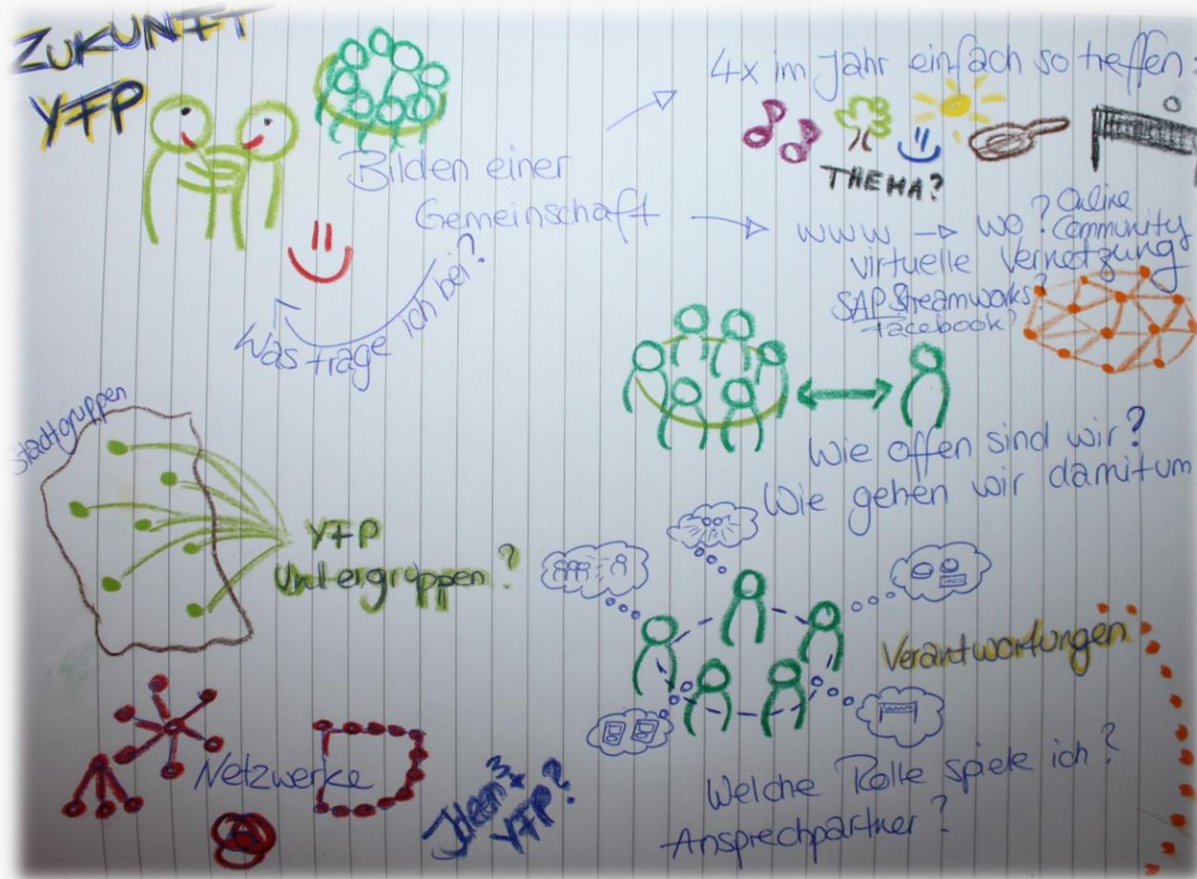 ZUKUNFT
YFP
Bilden einer
Gemeinschaft
Was trage ich bei?
4x im Jahr einfach so treffen:
THEMA?
www → wo? Online
Community
virtuelle Vernetzung
SAP Streamworks?
Facebook?
Wie offen sind wir?
Wie gehen wir damit um
Stadtgruppen
YFP
Untergruppen?
Verantwortungen
Netzwerke
Ideen³+
YFP?
Welche Rolle spiele ich?
Ansprechpartner?